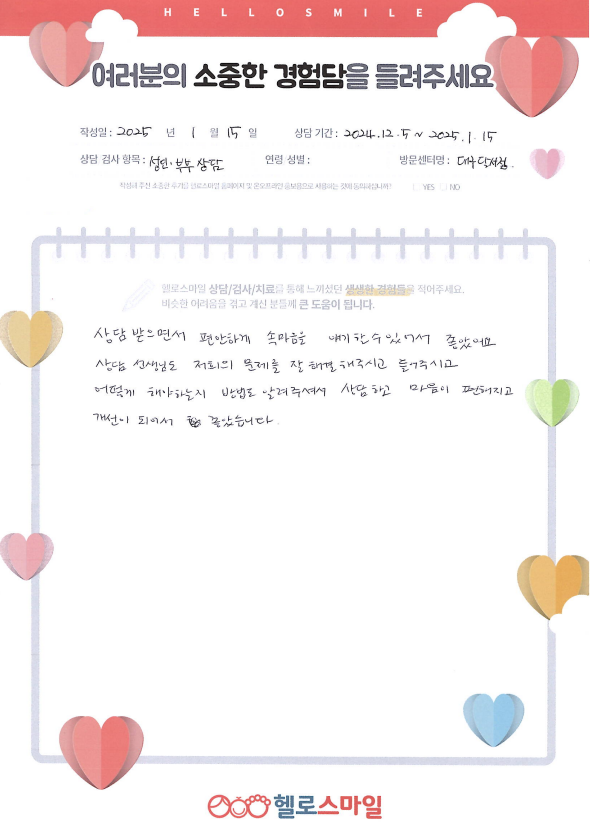 HELLOSMILE
여러분의 소중한 경험담을 들려주세요
작성일: 2025 년 1 월 15 일 상담 기간: 2024.12.5 ~ 2025.1.15
상담 검사 항목: 성인·부부 상담 연령 성별: 방문센터명: 대구달서점.
작성해 주신 소중한 수기를 헬로스마일 홈페이지 및 온오프라인 홍보용으로 사용하는 것에 동의하십니까? YES NO
헬로스마일 상담/검사/치료를 통해 느끼셨던 생생한 경험들을 적어주세요.
비슷한 어려움을 겪고 계신 분들께 큰 도움이 됩니다.
상담 받으면서 편안하게 속마음을 얘기할 수 있어서 좋았어요
상담 선생님도 저희의 문제를 잘 해결해주시고 들어주시고
어떻게 해야하는지 방법도 알려주셔서 상담하고 마음이 편해지고
개선이 되어서 좋았습니다.
헬로스마일